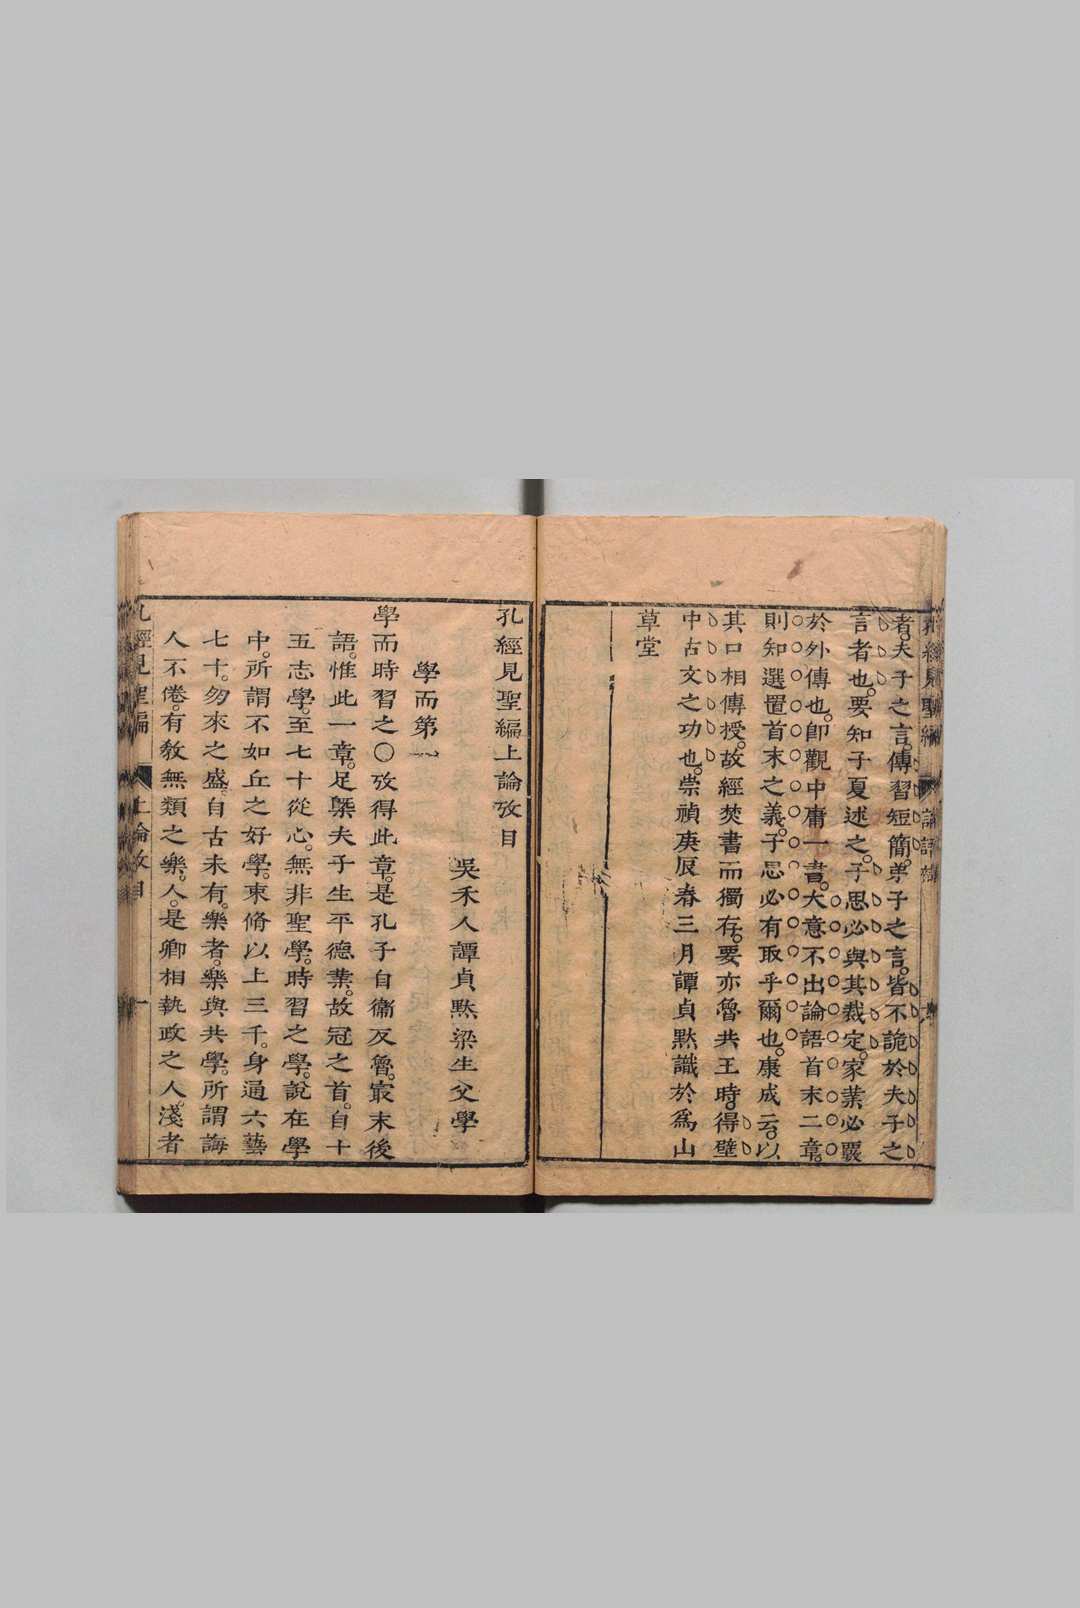 孔經見聖編
者。夫子之言。傳習短簡。弟子之言。皆不詭於夫子之
言者也。要知子夏述之。子思必與其裁定。家業必覈
於外傳也。卽觀中庸一書。大意不出論語首末二章。
則知選置首末之義。子思必有取乎爾也。康成云。以
其口相傳授。故經焚書而獨存。要亦魯共王時。得壁
中古文之功也。崇禎庚辰春三月譚貞默識於爲山
草堂
孔經見聖編上論攷目
吳禾人譚貞默梁生父學
學而第一
學而時習之〇攷得此章。是孔子自衞反魯。㝡末後
語。惟此一章。足槩夫子生平德業。故冠之首。自十
五志學。至七十從心。無非聖學。時習之學。說在學
中。所謂不如丘之好學。束脩以上三千。身通六藝
七十。朋來之盛。自古未有。樂者。樂與共學。所謂誨
人不倦。有敎無類之樂。人。是卿相執政之人。淺者
孔經見聖編 上論攷目 一